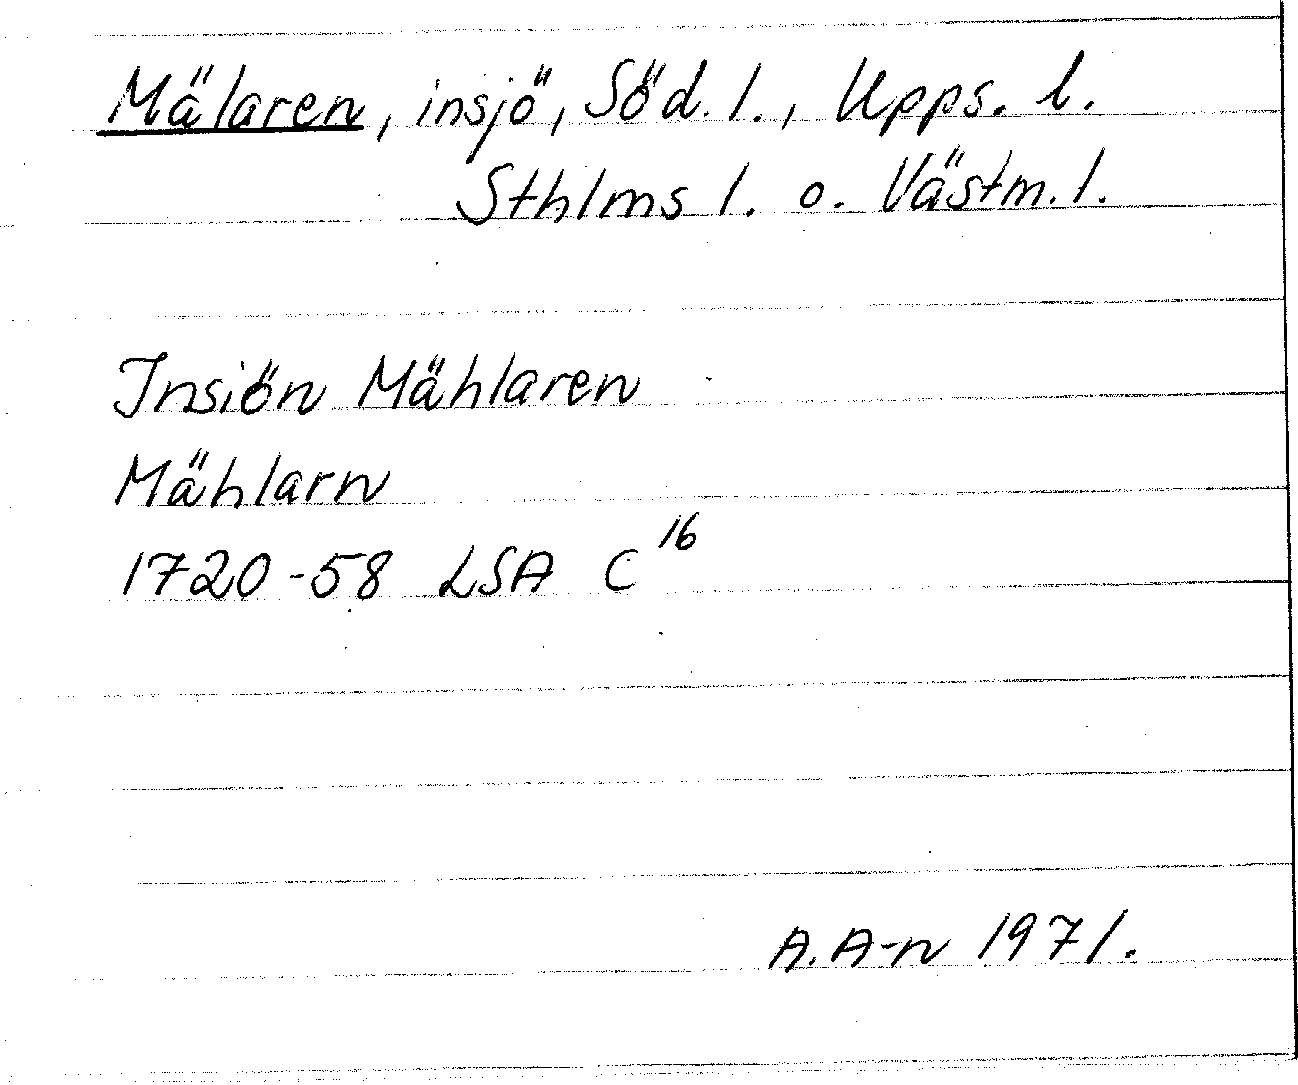 Mälaren, insjö, Söd. l., Upps. l.
Sthlms l. o. Västm. l.
Insiön Mählaren
Mählarn
1720-58 LSA C 16
A. A-n 1971.